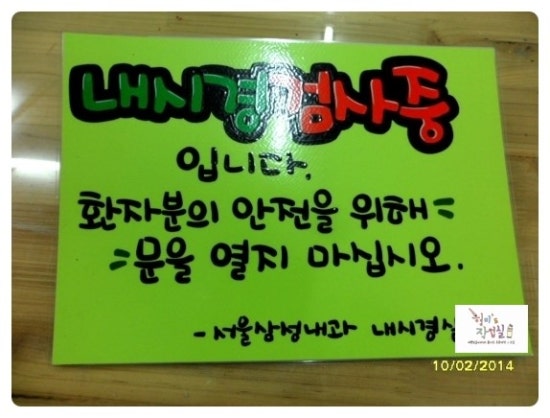 내시경검사중
입니다.
환자분의 안전을 위해
문을 열지 마십시오.
- 서울삼성내과 내시경실
10/02/2014